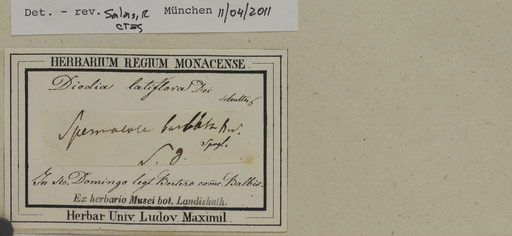 Det. - rev. Salas, R München 11/04/2011
CTES
HERBARIUM REGIUM MONACENSE.
Diodia latiflora Dec
Schultes
Spermacoce
Spergl.
S. D.
In St. Domingo legt. Bertero com. Balbis.
Ex herbario Musei bot. Landishuth.
Herbar Univ. Ludov. Maximil.